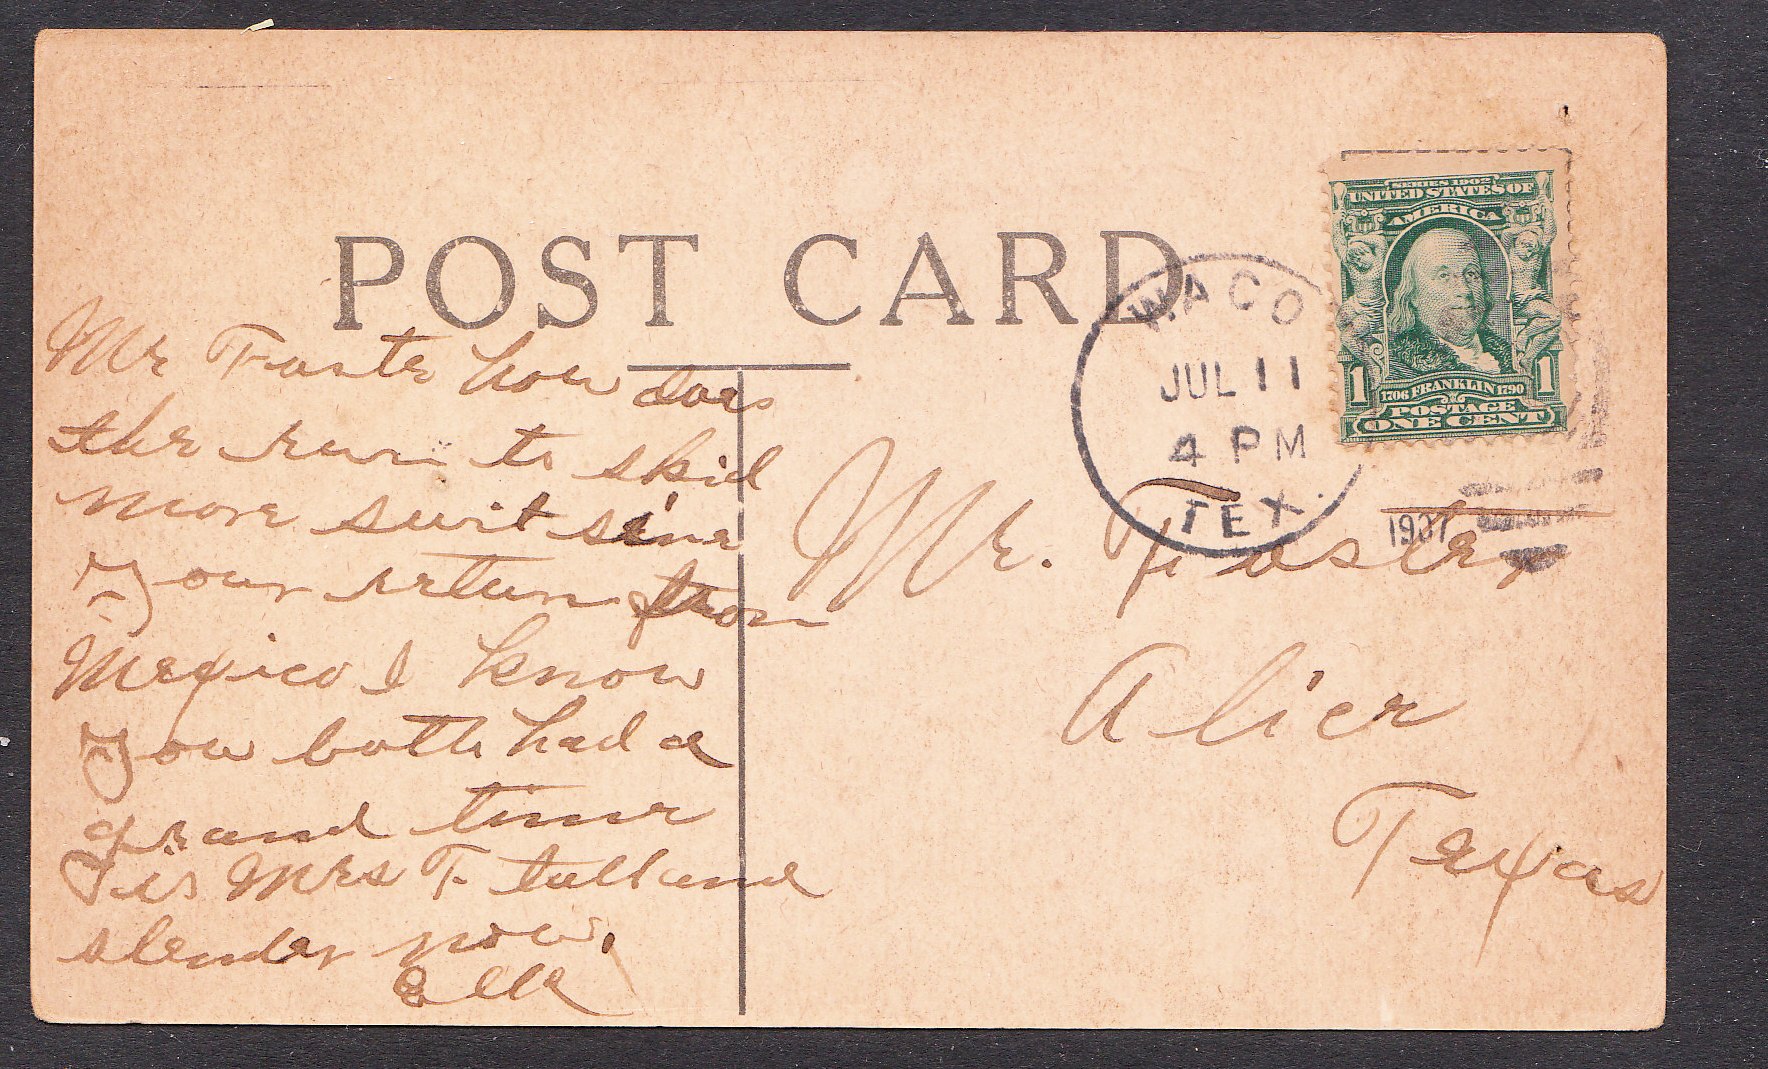 POST CARD
WACO
JUL 11
4 PM
TEX.
1907
SERIES 1902
UNITED STATES OF
AMERICA
1 1
1706 FRANKLIN 1790
POSTAGE
ONE CENT
Mr Foste how does
the run to skid
more suit sine
your return from
Mexico I know
you both had a
grand time
is Mrs F. tall and
slender now.
Mr. Foster
Alice
Texas